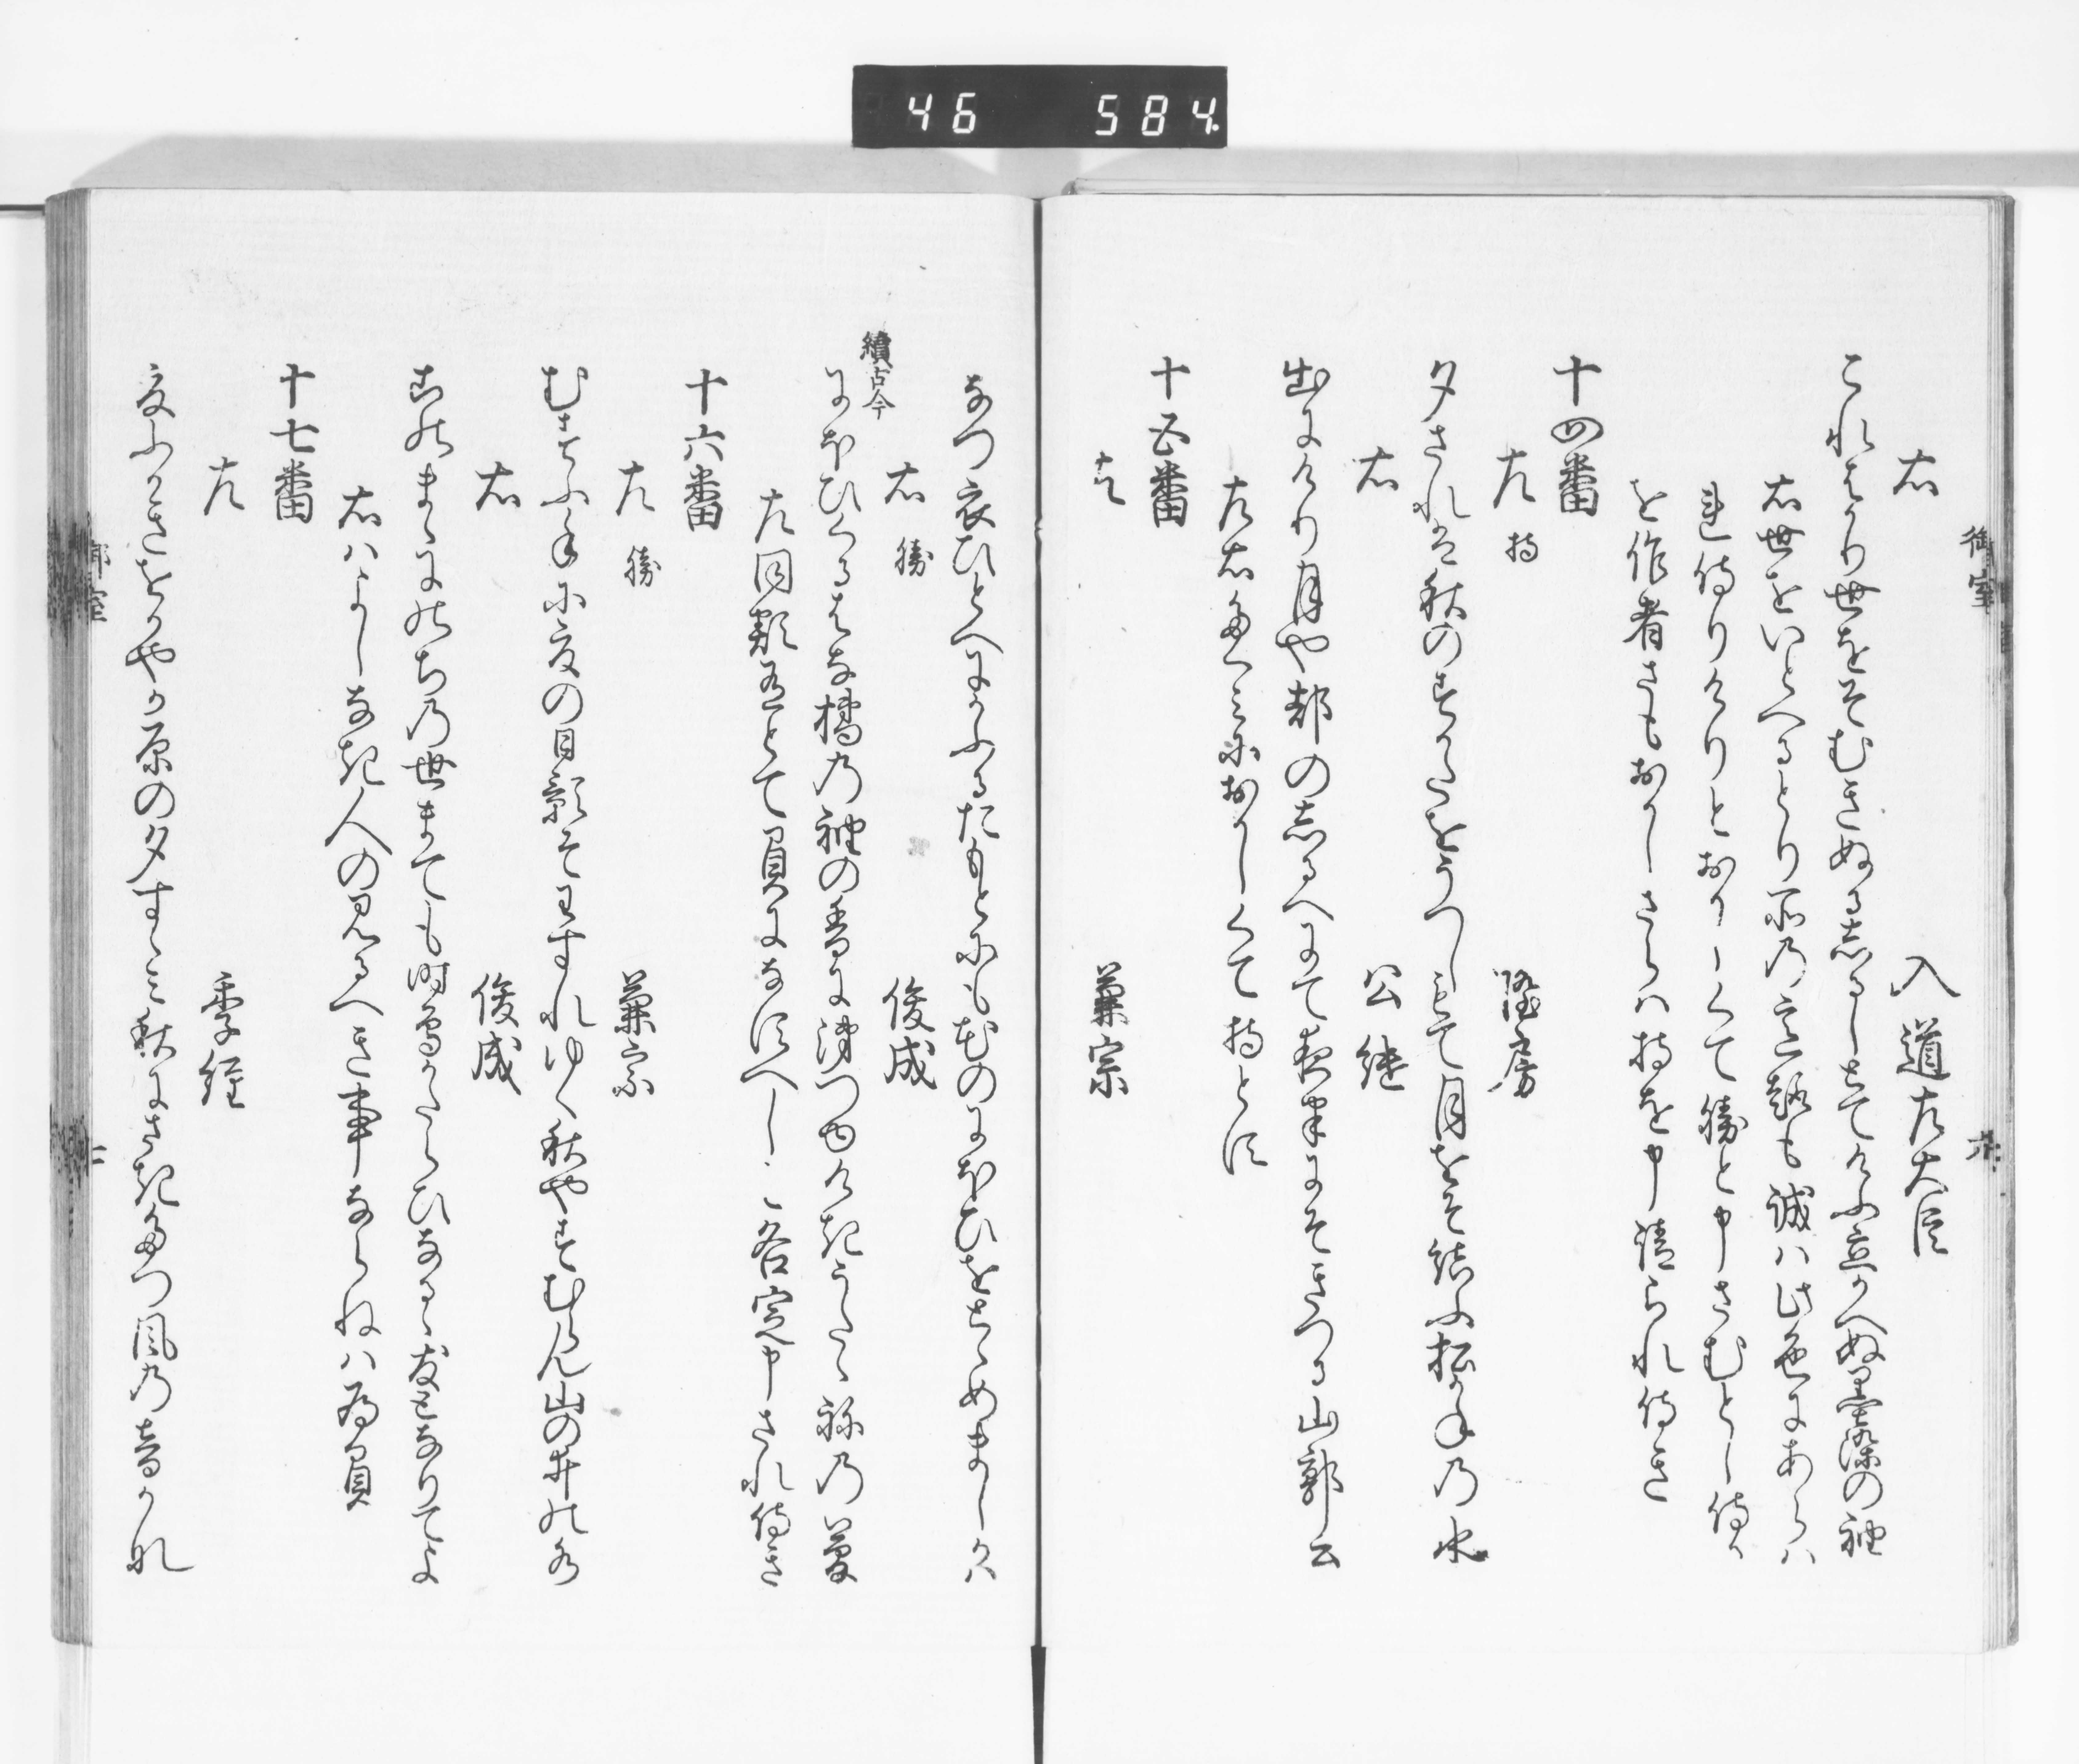 46 584
御室
右 入道左大臣
これはかり世をそむきぬるしるしとてけふ立かへぬ墨染の袖
右世をいとへるとり所乃意趣も誠ハ此色にあらハ
れ侍りけりとおかしくて勝と申さむとし侍か
を作者さもおかしさらハ持を申請られ侍き
十四番
左 持 隆房
夕されは秋のすかたをうつしもて月をそ結ふ松かねの水
右 公継
出にけり月や都のしるへにて契にそきつる山郭公
左右ともにおかしくて持とす
十五番
左 兼宗
なつ衣ひとへにかふるたもとにもむのにほひをとゝめましかハ
續古今
右 勝 俊成
にほひくるはな橘の袖の香に涙つゆけきうたゝ祢の夢
左同類有とて負になすへしこ各定申され侍き
十六番
左 勝 兼宗
むすふ手に夏の日影そわすれゆく秋やすむらん山の井の水
右 俊成
このまゝにのちの世まても時鳥かたらひなるゝ友となりてよ
右ハよしなき人の見るへき事ならねハ為負
十七番
左 季経
夏ふかきをかやか原の夕すゝみ秋にさきたつ風の音かな